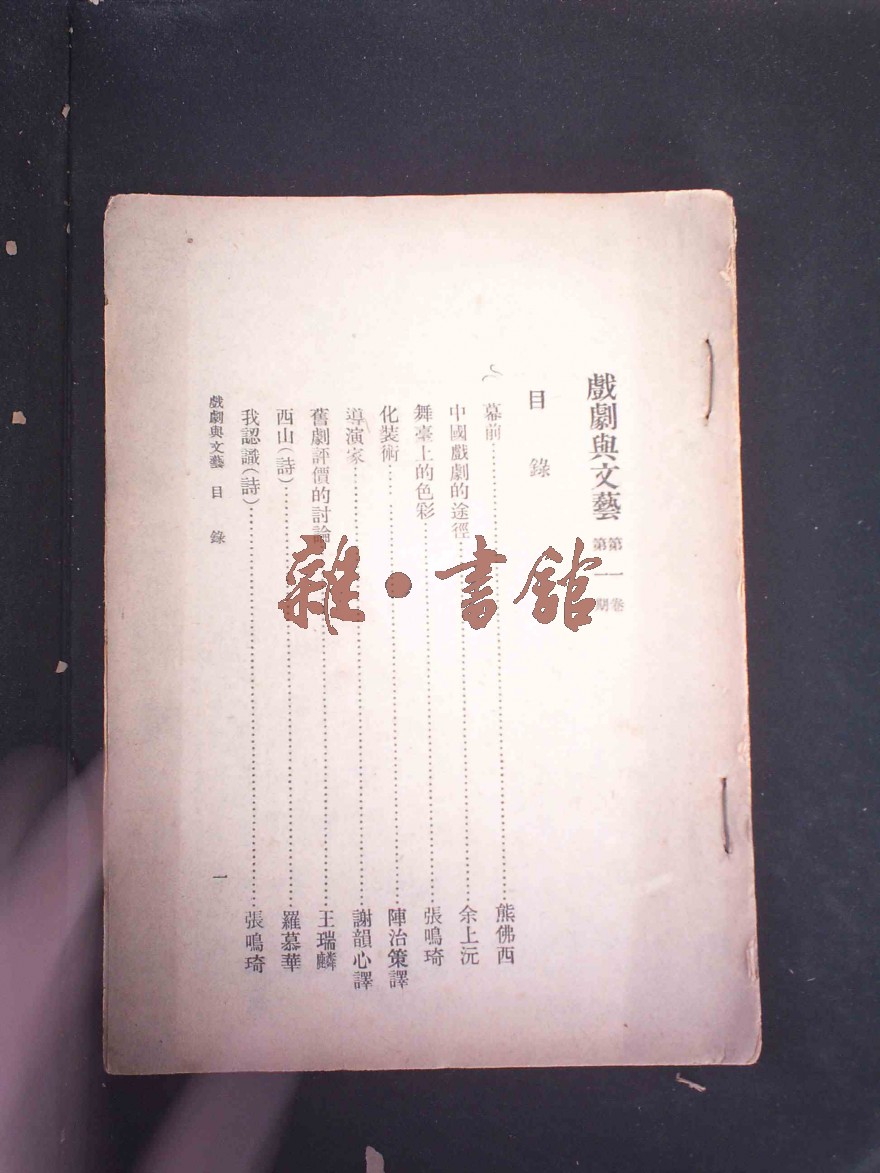 戲劇與文藝 第一卷
第一期
目錄
幕前……熊佛西
中國戲劇的途徑……余上沅
舞臺上的色彩……張鳴琦
化装術……陣治策譯
導演家……謝韻心譯
舊劇評價的討論……王瑞麟
西山(詩)……羅慕華
我認識(詩)……張鳴琦
戲劇與文藝 目錄 一
雜·書館